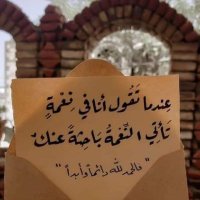 عِندما تَقُول أنا في نِعْمَةٍ
تَأتِي النِّعْمَةُ بَاحِثَةً عَنكْ
"فالحمدلله دائماً وأبداً"